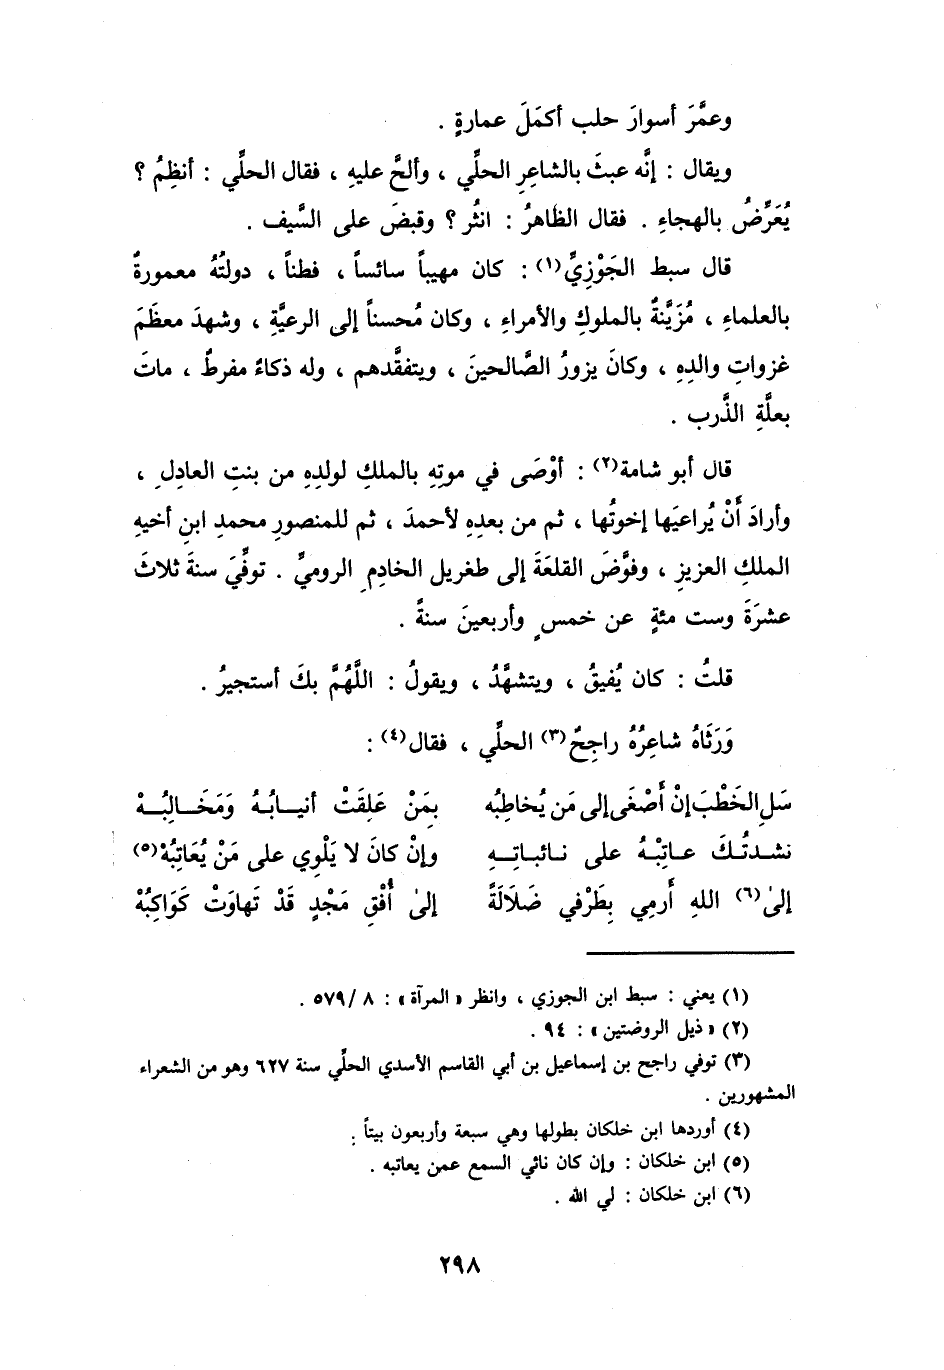 وعمَّرَ أسوارَ حلب أكمَلَ عمارةٍ .
ويقال : إنَّه عبثَ بالشاعِرِ الحلِّي ، وألحَّ عليهِ ، فقال الحلِّي : أنظِمُ ؟
يُعَرِّضُ بالهجاءِ . فقال الظاهرُ : انثُر ؟ وقبضَ على السَّيف .
قال سبط الجَوْزِيِّ(١) : كان مهيباً سائساً ، فطناً ، دولتُهُ معمورةٌ
بالعلماءِ ، مُزَيَّنةٌ بالملوكِ والأمراءِ ، وكان مُحسناً إلى الرعيَّةِ ، وشهدَ معظَمَ
غزواتِ والدِهِ ، وكانَ يزورُ الصَّالحينَ ، ويتفقَّدهم ، وله ذكاءٌ مفرطٌ ، ماتَ
بعلَّةِ الذَّرب .
قال أبو شامة(٢) : أوْصَى في موتِهِ بالملكِ لولدِهِ من بنتِ العادِلِ ،
وأرادَ أَنْ يُراعيَها إخوتُها ، ثم من بعدِهِ لأحمدَ ، ثم للمنصورِ محمدِ ابنِ أخيهِ
الملكِ العزيزِ ، وفوَّضَ القلعَةَ إلى طغريل الخادِمِ الروميِّ . توفِّيَ سنةَ ثلاثَ
عشرَةَ وست مئةٍ عن خمسٍ وأربعينَ سنةً .
قلتُ : كان يُفيقُ ، ويتشهَّدُ ، ويقولُ : اللَّهُمَّ بكَ أستجيرُ .
وَرَثَاهُ شاعِرُهُ راجِحٌ(٣) الحلِّي ، فقال(٤) :
سَلِ الخَطْبَ إنْ أَصْغَى إلى مَن يُخاطِبُه بِمَنْ عَلِقَتْ أنيـابُـهُ وَمَخَـالِبُـهْ
نشـدتُـكَ عـاتِبْـهُ على نـائبـاتِـهِ وإنْ كانَ لا يَلْوِي على مَنْ يُعَاتِبُهْ(٥)
إلىٰ(٦) اللهِ أَرمِي بِطَرْفي ضَلَالَةً إلىٰ أُفْقِ مَجْدٍ قَدْ تَهاوَتْ كَوَاكِبُهْ
(١) يعني : سبط ابن الجوزي ، وانظر « المرآة » : ٨ / ٥٧٩ .
(٢) « ذيل الروضتين » : ٩٤ .
(٣) توفي راجح بن إسماعيل بن أبي القاسم الأسدي الحلِّي سنة ٦٢٧ وهو من الشعراء
المشهورين .
(٤) أوردها ابن خلكان بطولها وهي سبعة وأربعون بيتاً .
(٥) ابن خلكان : وإن كان نائي السمع عمن يعاتبه .
(٦) ابن خلكان : لي الله .
٢٩٨